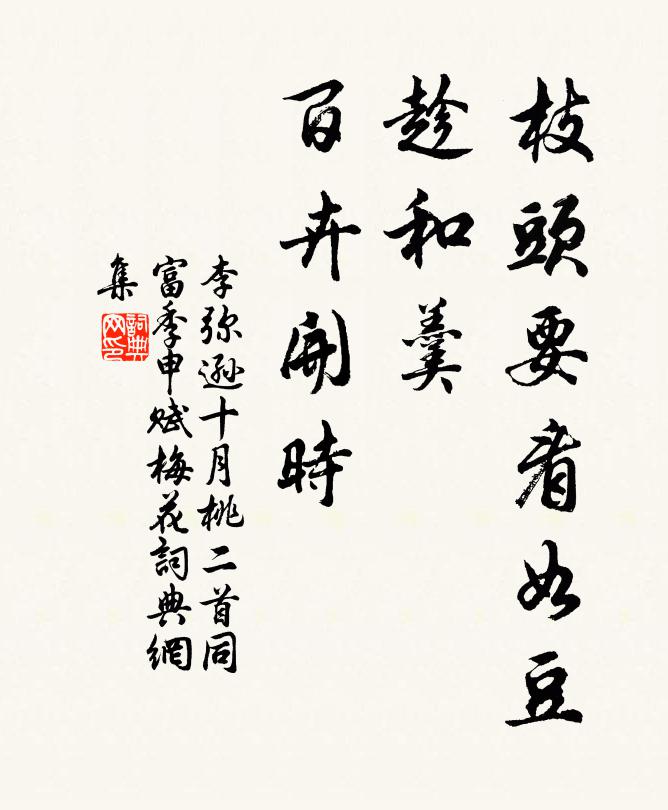 枝頭要看如豆
趁和羹
百卉開時
李弥遜十月桃二首同
富季申賦梅花詞典網
集
詞典網印